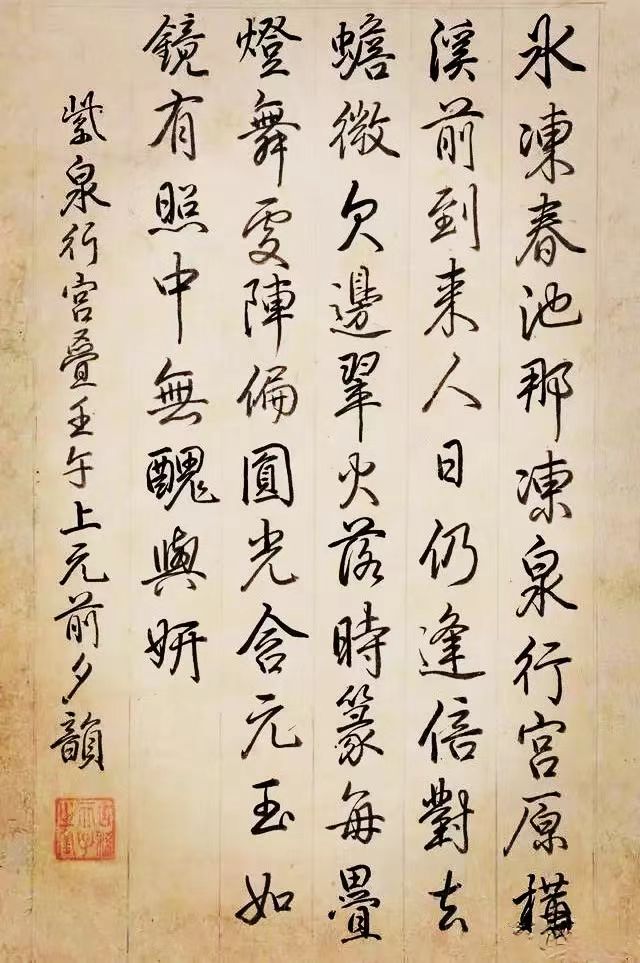 氷凍春池那凍泉行宮原橫
溪前到来人日仍逢倍對去
蟾微欠邊翠火落時篆每疊
燈舞處陣偏圓光含元玉如
鏡有照中無醜與妍
紫泉行宮疊壬午上元前夕韻